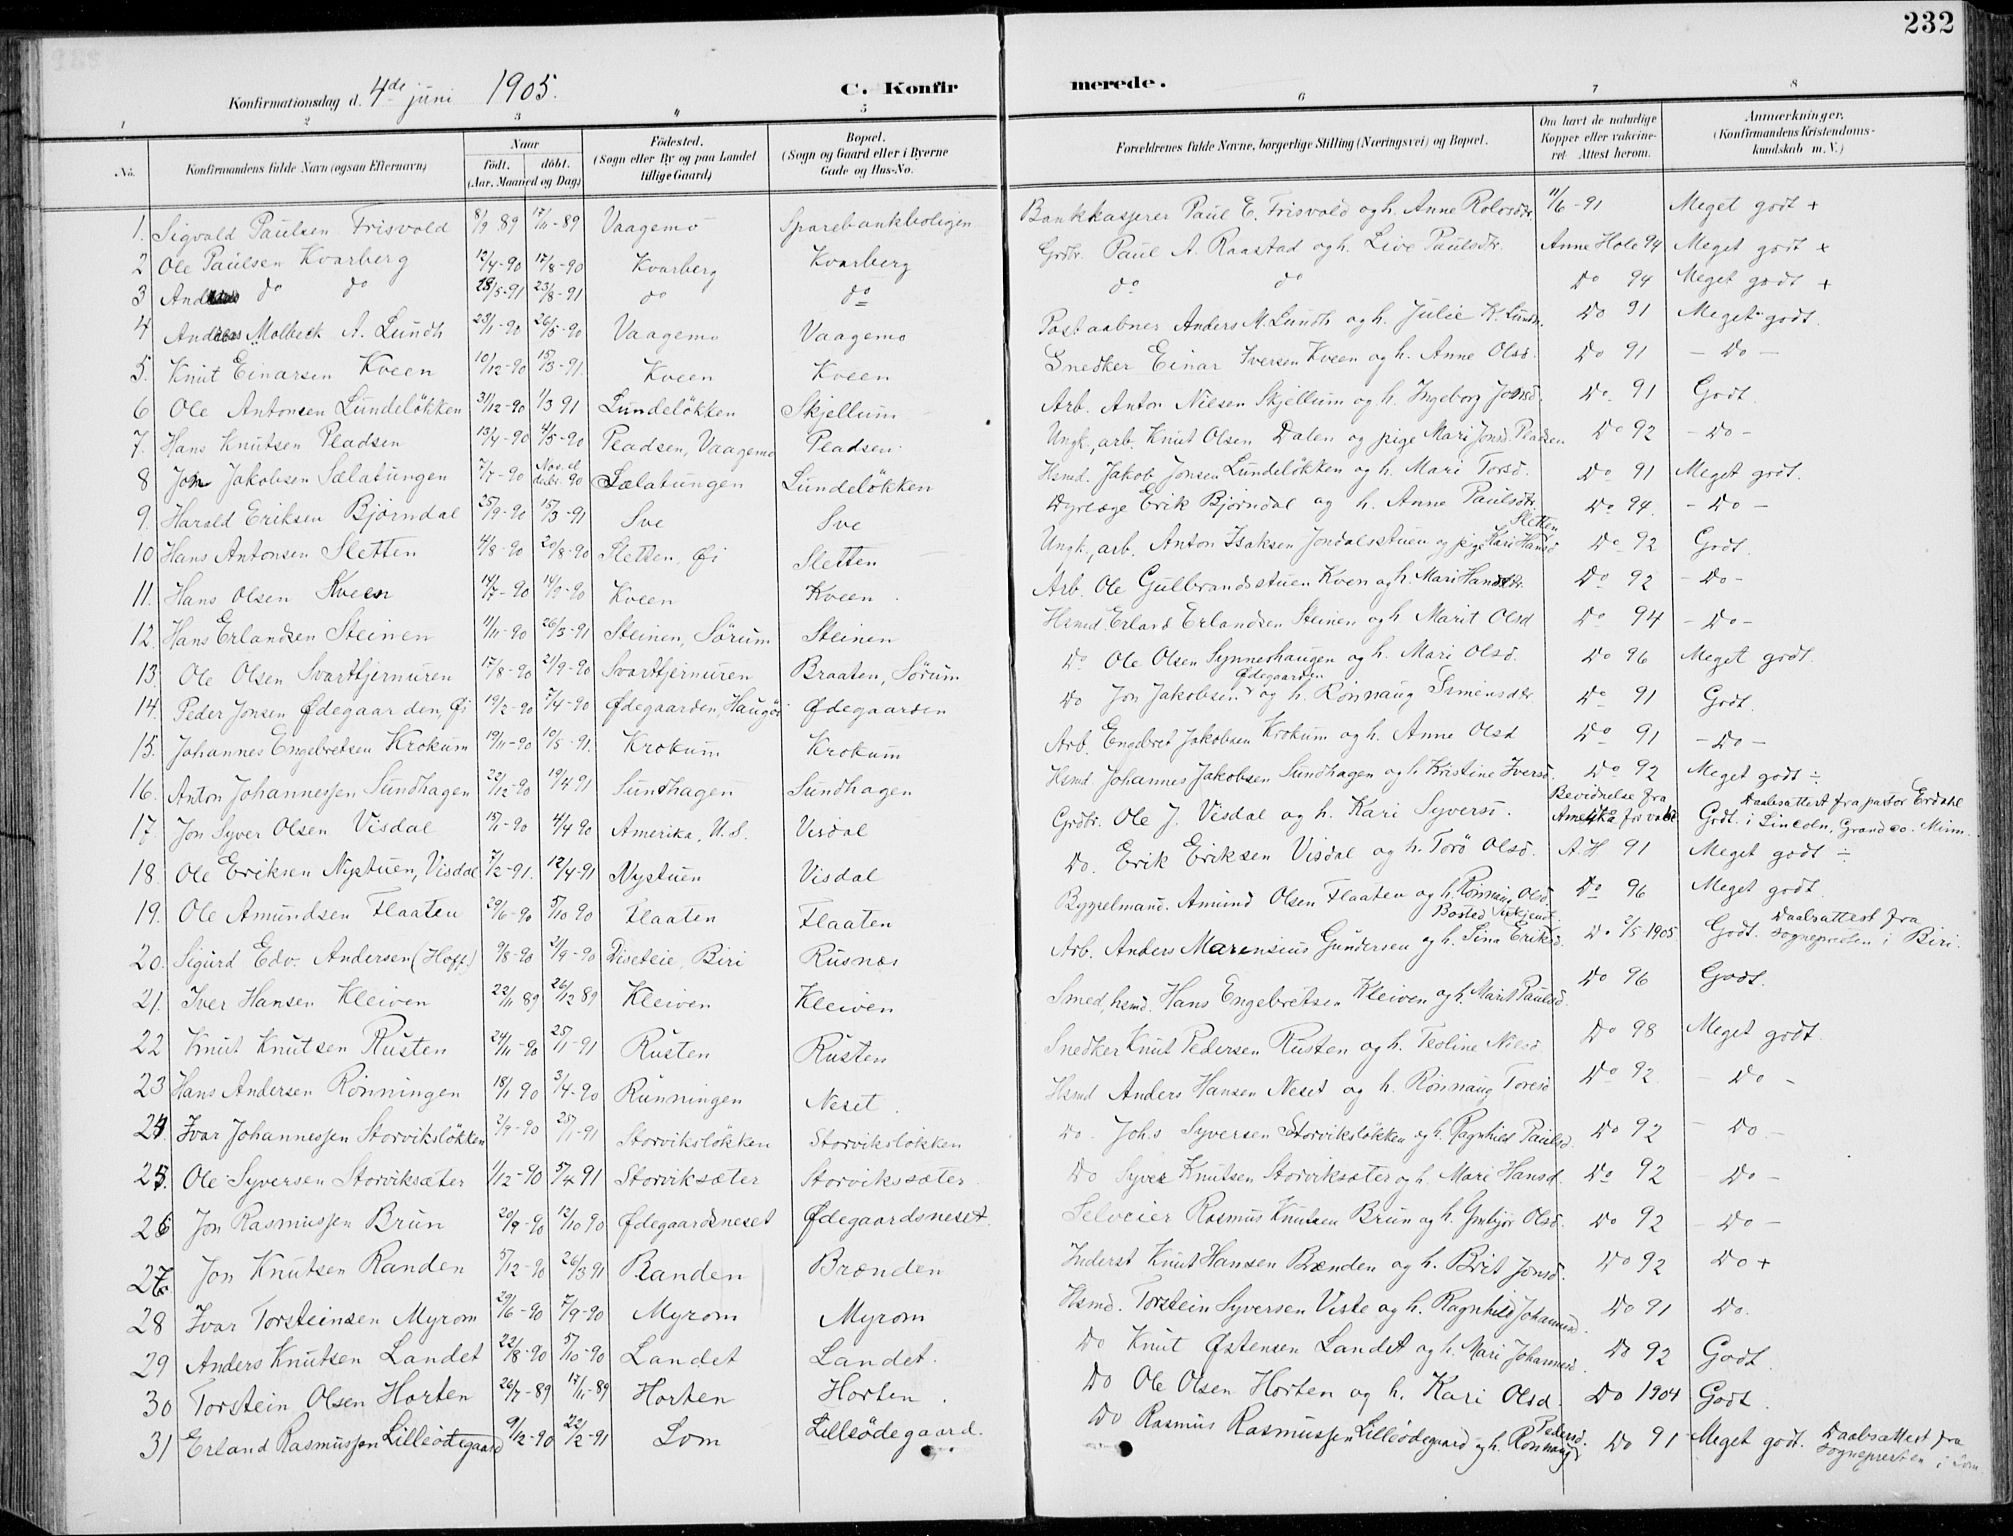 232
Konfirmationsdag d. 4de juni 1905. C. Konfirmerede.
1 2 3 4 5 6 7 8
No. Konfirmandens fulde Navn (ogsaa Efternavn) Naar født. døbt. (Aar, Maaned og Dag) Fødested. (Sogn eller By og paa Landet tillige Gaard) Bopæl. (Sogn og Gaard eller i Byerne Gade og Hus-No. Forældrenes fulde Navne, borgerlige Stilling (Næringsvei) og Bopæl. Om havt de naturlige Kopper eller vakcineret. Attest herom. Anmærkninger. (Konfirmandens Kristendomskundskab m. V.)
1. Sigvald Paulsen Frisvold 8/9 89 17/11-89 Vaagemo Sparebankboligen Bankkasserer Paul E. Frisvold og h. Anne Rolvsdtr. 11/6-91 Meget godt +
2 Ole Paulsen Kvarberg 12/4-90 17/8-90 Kvarberg Kvarberg Grdbr. Paul A. Raastad og h. Live Paulsdtr. Anne Hole 94 Meget godt +
3 do do 28/5-91 23/8-91 do do do do Do 94 Meget godt +
4 Molbech A. Lundh 23/1-90 26/5-90 Vaagemo Vaagemo Postaabner Anders M. Lundh og h. Julie K. Lundh. Do 91 Meget godt.
5. Knut Einarsen Kveen 10/12-90 15/3-91 Kveen Kveen Snedker Einar Iversen Kveen og h. Anne Olsd. Do 91 - Do -
6 Ole Antonsen Lundeløkken 31/12-90 1/3 91 Lundeløkken Skjellum Arb. Anton Nilsen Skjellum og h. Ingeborg Jonsd. Do 91 Godt.
7. Hans Knutsen Pladsen 13/4-90 4/5-90 Pladsen, Vaagemo Pladsen Ungk., arb. Knut Olsen Dalen og pige Mari Jonsd. Pladsen Do 92 - Do -
8 Jon Jakobsen Sælatungen 7/7-90 Nov. el debr. 90 Sælatungen Lundeløkken Hsmd. Jakob Jonsen Lundeløkken og h. Mari Torsd. Do 91 Meget godt.
9. Harald Eriksen Bjørndal 25/9-90 15/3-91 Sve Sve Dyrlæge Erik Bjørndal og h. Anne Paulsdtr Do 94. - Do -
10 Hans Antonsen Sletten 4/8-90 20/8-90 Sletten, Øi Sletten Ungk., arb. Anton Isaksen Jondalsstuen og pige Kari Hansd Sletten Do 92 Godt.
11. Hans Olsen Kveen 14/7-90 14/9-90 Kveen Kveen. Arb. Ole Gulbrandsstuen Kveen og h. Mari Hansdtr. Do 92 - Do -
12. Hans Erlandsen Steinen 11/11-90 26/3-91 Steinen, Sørum Steinen Hsmd. Erland Erlandsen Steinen og h. Marit Olsd Do 94 - Do -
13. Ole Olsen Svarttjernuren 17/8-90 21/9-90 Svarttjernuren Braaten, Sørum Do Ole Olsen Synnershaugen og h. Mari Olsd. Do 96 Meget godt.
14. Peder Jonsen Ødegaarden, Øi 19/2-90 7/4-90 Ødegaarden, Haugøi Ødegaarden Do Jon Jakobsen Ødegaarden og h. Rønnaug Simensdtr Do 91 Godt.
15. Johannes Engebretsen Krokum 19/11-90 10/5-91. Krokum Krokum Arb. Engebret Jakobsen Krokum og h. Anne Olsd Do 91 - Do -
16. Anton Johannessen Sundhagen 22/12-90 19/4 91 Sundhagen Sundhagen Hsmd. Johannes Jakobsen Sundhagen og h Kristine Iversd. Do 92 Meget godt ÷
17. Jon Syver Olsen Visdal 15/1-90 4/4 90 Amerika, U.S. Visdal Grdbr. Ole J. Visdal og h. Kari Syversd. Bevidnelse fra Amerika for vakc Godt. Daabsattest fra pastor Erdahl i Lincoln, Grand co. Minn.
18. Ole Eriksen Nystuen, Visdal 7/2-91. 12/4-91 Nystuen Visdal Do. Erik Eriksen Visdal og h. Torø Olsd. A.H 91 Meget godt ÷
19. Ole Amundsen Flaaten 29/6-90 5/10 90 Flaaten Flaaten Byggelmand. Amund Olsen Flaaten og h. Rønnaug Olsd. Do 96 Meget godt.
20. Sigurd Edv. Andersen (Hoff) 9/8-90 21/9-90 Diseteie, Biri Rusnæs Arb. Anders Marensius Gundersen og h. Lina Eriksd. Bosted ukjent. Do 2/5-1905 Godt. Daabsattest fra sognepresten i Biri.
21. Iver Hansen Kleiven 22/11 89 26/12 89 Kleiven Kleiven Smed, hsmd. Hans Engebretsen Kleiven og h. Marit Paulsd. Do 96 Godt.
22 Knut Knutsen Rusten 24/11-90 25/1-91 Rusten Rusten Snedker Knut Pedersen Rusten og h. Teoline Nilsd. Do 98 Meget godt.
23 Hans Andersen Rønningen 18/1 90 3/4-90 Rønningen Neset. Hsmd Anders Hansen Neset og h. Rønnaug Toresd Do 92. - Do -
24. Ivar Johannessen Storviksløkken 2/9-90 25/1-91 Storviksløkken Storviksløkken Do. Johs Syversen Storviksløkken og h. Ragnhild Paulsd. Do 92 - Do -
25. Ole Syversen Storviksæter 1/12-90 5/4 91 Storviksæter Storviksæter. Do Syver Knutsen Storviksæter og h. Mari Hansd. Do 92 - Do -
26 Jon Rasmussen Brun 20/9-90 12/10 90 Ødegaardsneset Ødegaardsneset. Selveier Rasmus Knutsen Brun og h. Gunbjør Olsd. Do 92 - Do -
27. Jon Knutsen Randen 5/12-90 26/3 91 Randen Brænden Inderst Knut Hansen Brænden og h. Brit Jonsd. Do 92 Do +
28 Ivar Torsteinsen Myrom 29/6-90 7/9-90 Myrom Myrom Hsmd. Torstein Syversen Viste og h. Ragnhild Johannesd. Do 91 Do.
29 Anders Knutsen Landet 22/8-90 5/10-90 Landet Landet. Do Knut Østensen Landet og h. Mari Johannesd. Do 92 Godt.
30 Torstein Olsen Horten 26/7-89 17/11-89 Horten Horten. Do Ole Olsen Horten og h. Kari Olsd. Do 1904 Godt.
31 Erland Rasmussen Lilleødegaard 9/12-90 22/2-91 Lom Lilleødegaard. Do Rasmus Rasmussen Lilleødegaard og h. Rønnaug Pedersd. Do 91 Meget godt. Daabsattest fra sognepresten i Lom.